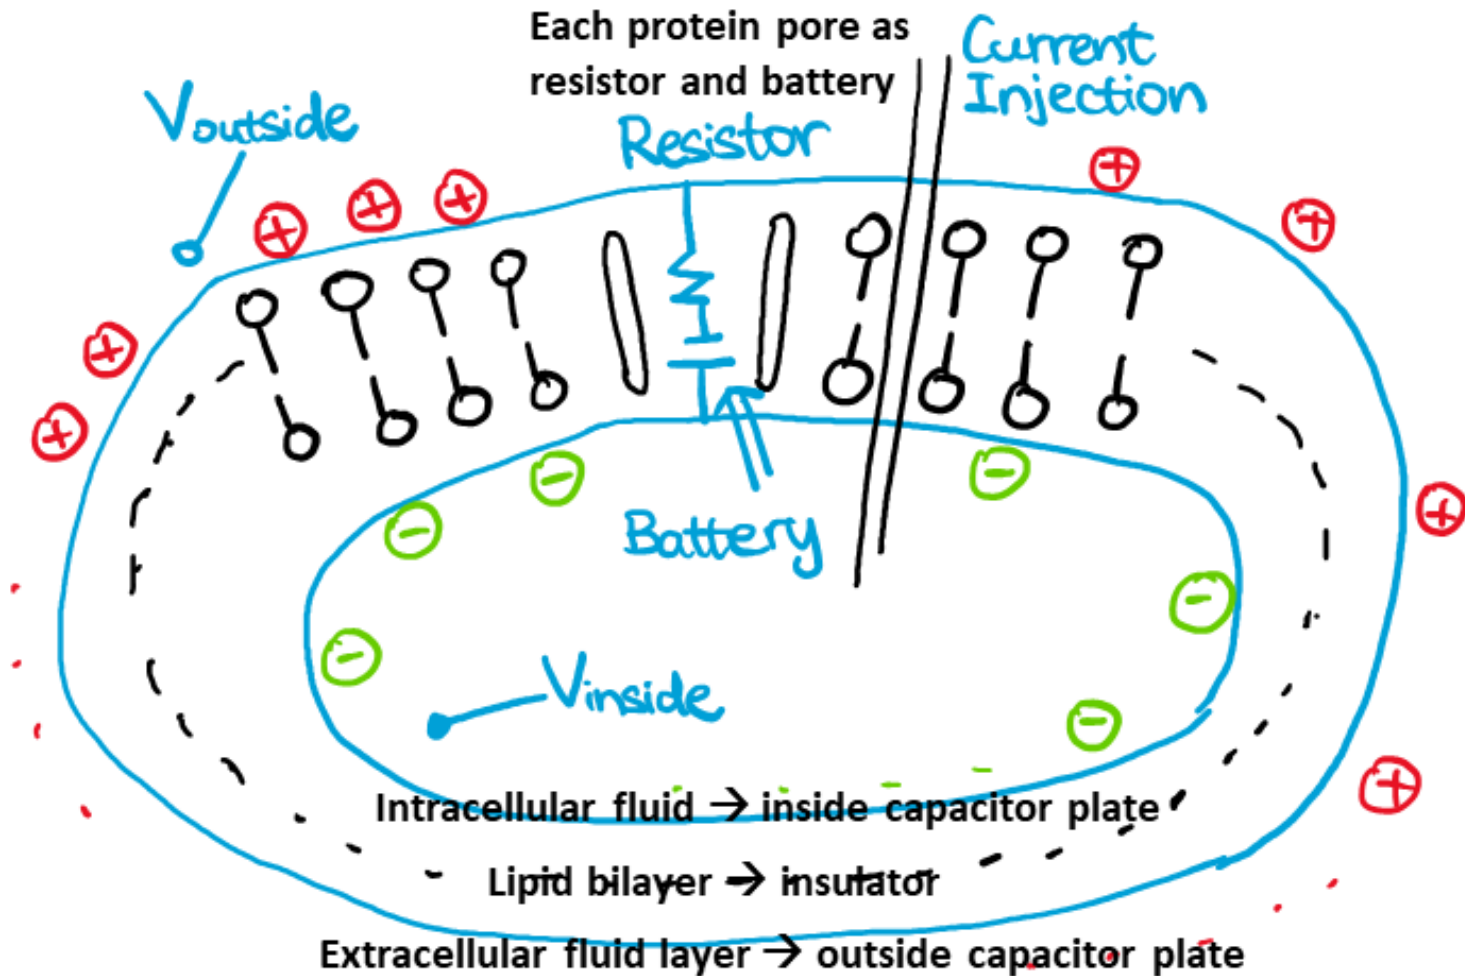 Each protein pore as
resistor and battery
Current
Injection
Voutside
Resistor
Battery
Vinside
Intracellular fluid → inside capacitor plate
Lipid bilayer → insulator
Extracellular fluid layer → outside capacitor plate